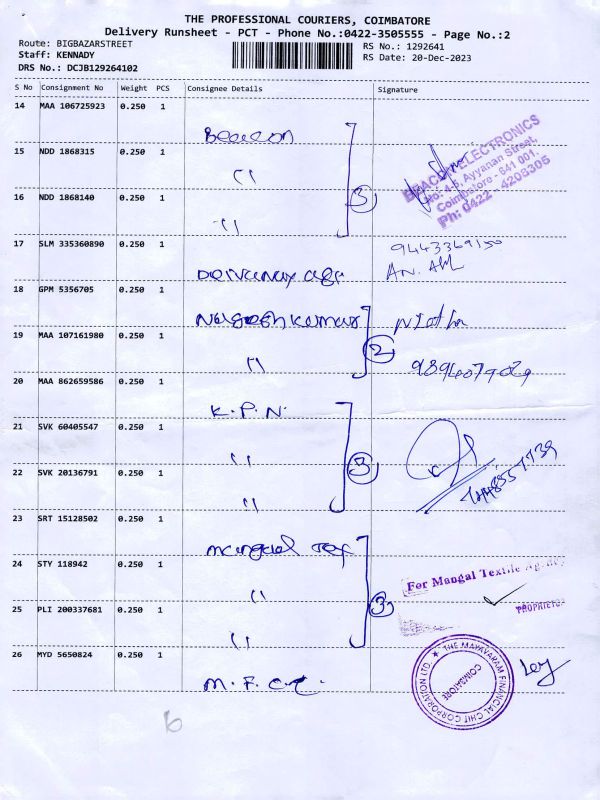 THE PROFESSIONAL COURIERS, COIMBATORE
Delivery Runsheet - PCT - Phone No.:0422-3505555 - Page No.:2
Route: BIGBAZARSTREET
RS No.: 1292641
Staff: KENNADY
RS Date: 20-Dec-2023
DRS No.: DCJB129264102
S No Consignment No Weight PCS Consignee Details Signature
14 MAA 106725923 0.250 1
Beacon
15 NDD 1868315 0.250 1
"
16 NDD 1868140 0.250 1
" 3
BEACON ELECTRONICS
No: 4-5, Ayyanan Street,
Coimbatore - 641 001.
Ph: 0422 - 4208305
17 SLM 335360890 0.250 1
9443369150
18 GPM 5356705 0.250 1
19 MAA 107161980 0.250 1
" 2
20 MAA 862659586 0.250 1
K.P.N.
21 SVK 60405547 0.250 1
"
22 SVK 20136791 0.250 1
" 3
23 SRT 15128502 0.250 1
24 STY 118942 0.250 1
"
For Mangal Textile
25 PLI 200337681 0.250 1
" 3
PROPRIETOR
26 MYD 5650824 0.250 1
M.F.C.
THE MAYAVARAM FINANCIAL CHIT CORPORATION LTD. ★
COIMBATORE
6